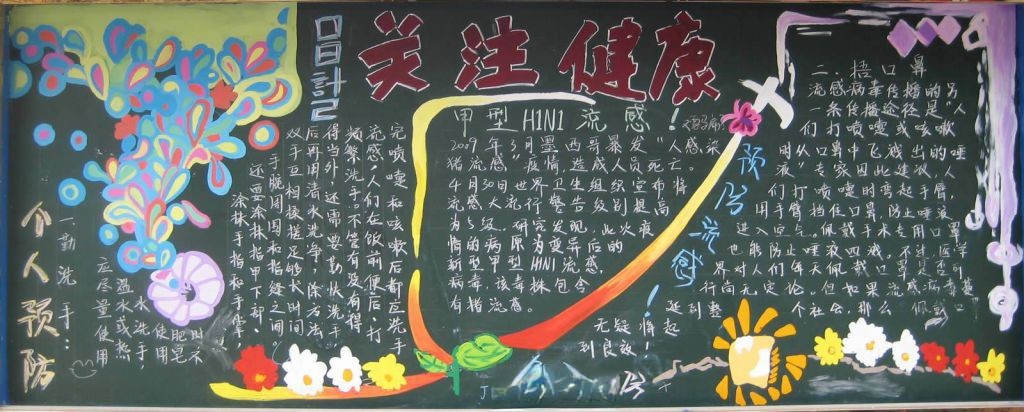 关注健康
个人预防
一、勤洗手：
应尽量使用
温水或热
水洗手，
肥皂
时不
涂抹手指和手掌，
还要涂抹手指甲下部、
手腕周围和指缝之间
双手互相揉搓足够长时间
后再用清水洗净。除方法
得当外，还需要勤快洗手，
频繁洗手。不管有没有得
流感，人们在饭前便后、打
完喷嚏和咳嗽后都应洗手
甲型H1N1流感！
2009年3月墨西哥暴发“人感染
猪流感”疫情，造成人员死亡。
4月30日世界卫生组织宣布将
流感大流行警告级别提高
为5级。研究发现，此次疫
情的病原为变异后的
新型甲型H1N1流感
病毒，该毒株包含
有猪流感
预防流感！
二、捂口鼻
流感病毒传播的另
一条传播途径是“人
们打喷嚏或咳嗽
时从口鼻中飞溅出的唾
液”。专家因此建议，人
们打喷嚏时弯起手臂，
用手臂挡住口鼻，防止唾液
进入空气。佩戴手术专用口罩
也能防止唾液四溅。不过医学
界对人们每天佩戴口罩是否可
行尚无定论。但如果流感病毒蔓
延到整个社会，那么佩戴
无疑将起
到良效！